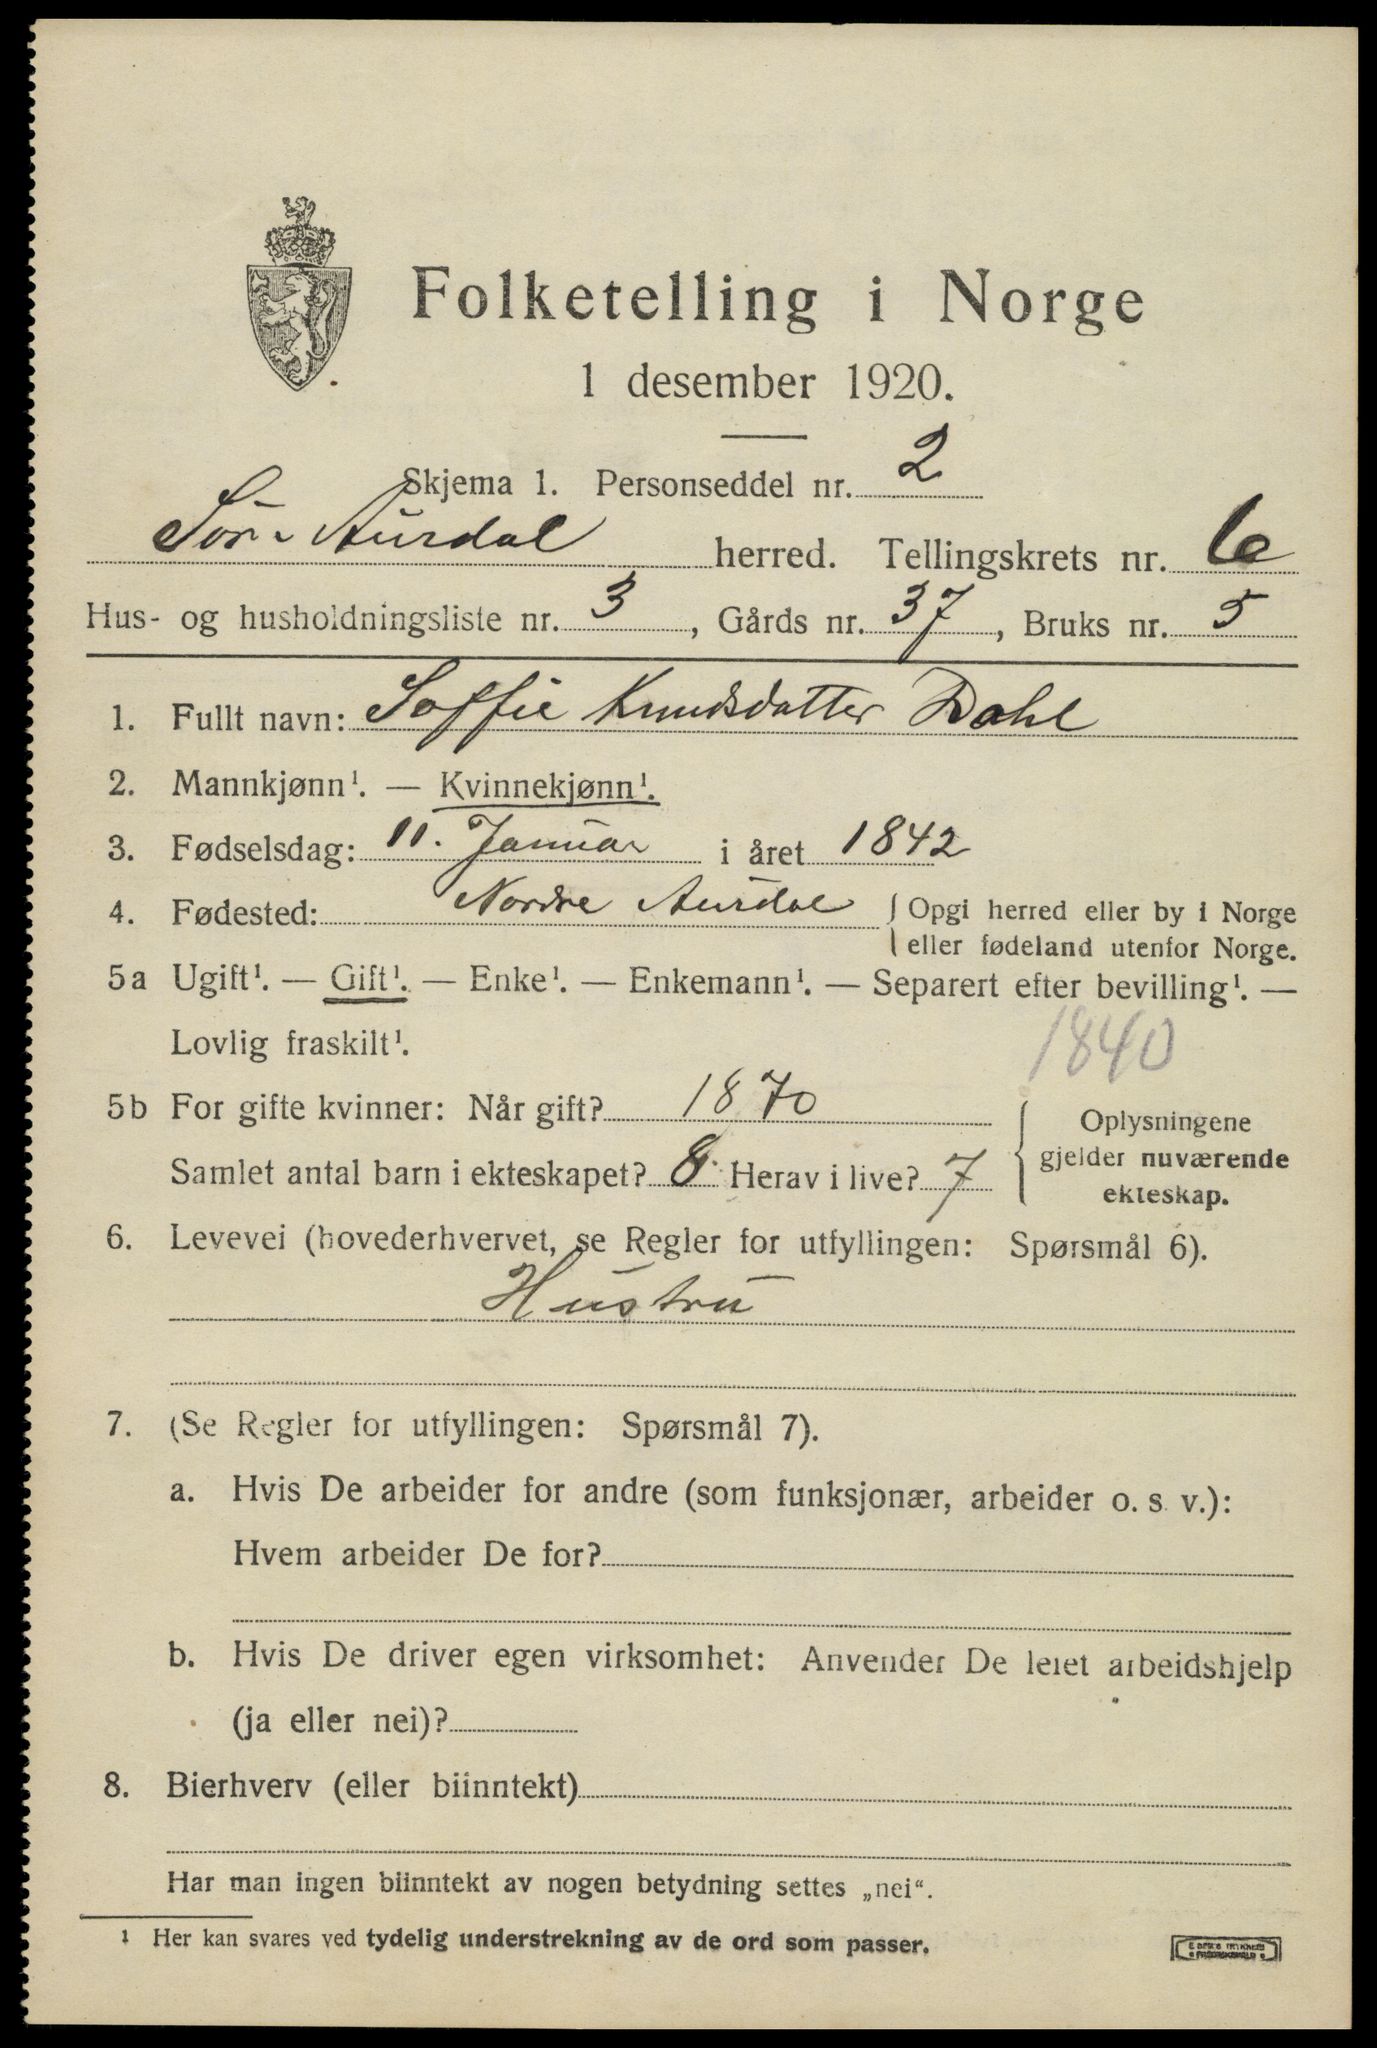 Folketelling i Norge
1 desember 1920.
Skjema 1. Personseddel nr. 2
Sör-Aurdal herred. Tellingskrets nr. 6
Hus- og husholdningsliste nr. 3, Gårds nr. 37, Bruks nr. 5
1. Fullt navn: Soffie Knudsdatter Dahl
2. Mannkjønn¹. — Kvinnekjønn¹.
3. Fødselsdag: 11. Januar i året 1842
4. Fødested: Nordre Aurdal { Opgi herred eller by i Norge
eller fødeland utenfor Norge.
5a Ugift¹. — Gift¹. — Enke¹. — Enkemann¹. — Separert efter bevilling¹. —
Lovlig fraskilt¹. 1840
5b For gifte kvinner: Når gift? 1870
Samlet antal barn i ekteskapet? 8. Herav i live? 7
{ Oplysningene
gjelder nuværende
ekteskap.
6. Levevei (hovederhvervet, se Regler for utfyllingen: Spørsmål 6).
Hustru
7. (Se Regler for utfyllingen: Spørsmål 7).
a. Hvis De arbeider for andre (som funksjonær, arbeider o. s. v.):
Hvem arbeider De for?
b. Hvis De driver egen virksomhet: Anvender De leiet arbeidshjelp
(ja eller nei)?
8. Bierhverv (eller biinntekt)
Har man ingen biinntekt av nogen betydning settes „nei“.
¹ Her kan svares ved tydelig understrekning av de ord som passer.